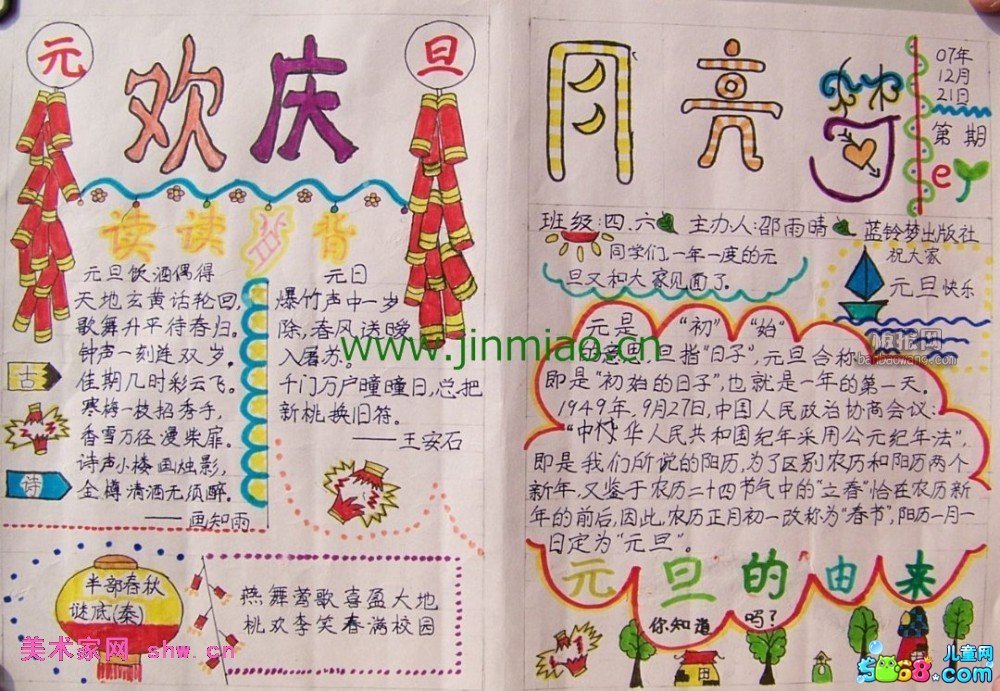 元
欢庆
旦
读读背背
元旦饮酒偶得
天地玄黄话轮回,
歌舞升平待春归。
钟声一刻连双岁,
佳期几时彩云飞。
寒梅一枝招秀手,
香雪万径漫柴扉。
诗声小楼画烛影,
金樽清酒无须醉。
——画知雨
古
诗
元日
爆竹声中一岁
除,春风送暖
入屠苏。
千门万户曈曈日,总把
新桃换旧符。
——王安石
半部春秋
谜底(秦)
燕舞莺歌喜盈大地
桃欢李笑春满校园
月亮
07年
12月
21日
第 期
班级:四.六 主办人:邵雨晴 蓝铃梦出版社
同学们,一年一度的元
旦又和大家见面了。
祝大家
元旦快乐
元是“初”“始”
的意思,旦指“日子”,元旦合称
即是“初始的日子”,也就是一年的第一天。
1949年,9月27日,中国人民政治协商会议:
“中华人民共和国纪年采用公元纪年法”,
即是我们所说的阳历,为了区别农历和阳历两个
新年,又鉴于农历二十四节气中的“立春”恰在农历新
年的前后,因此,农历正月初一改称为“春节”,阳历一月一
日定为“元旦”。
元旦的由来
你知道吗?
www.jinmiao.cn
版报网
banbaowang.com
美术家网 shw.cn
儿童网
5068.com